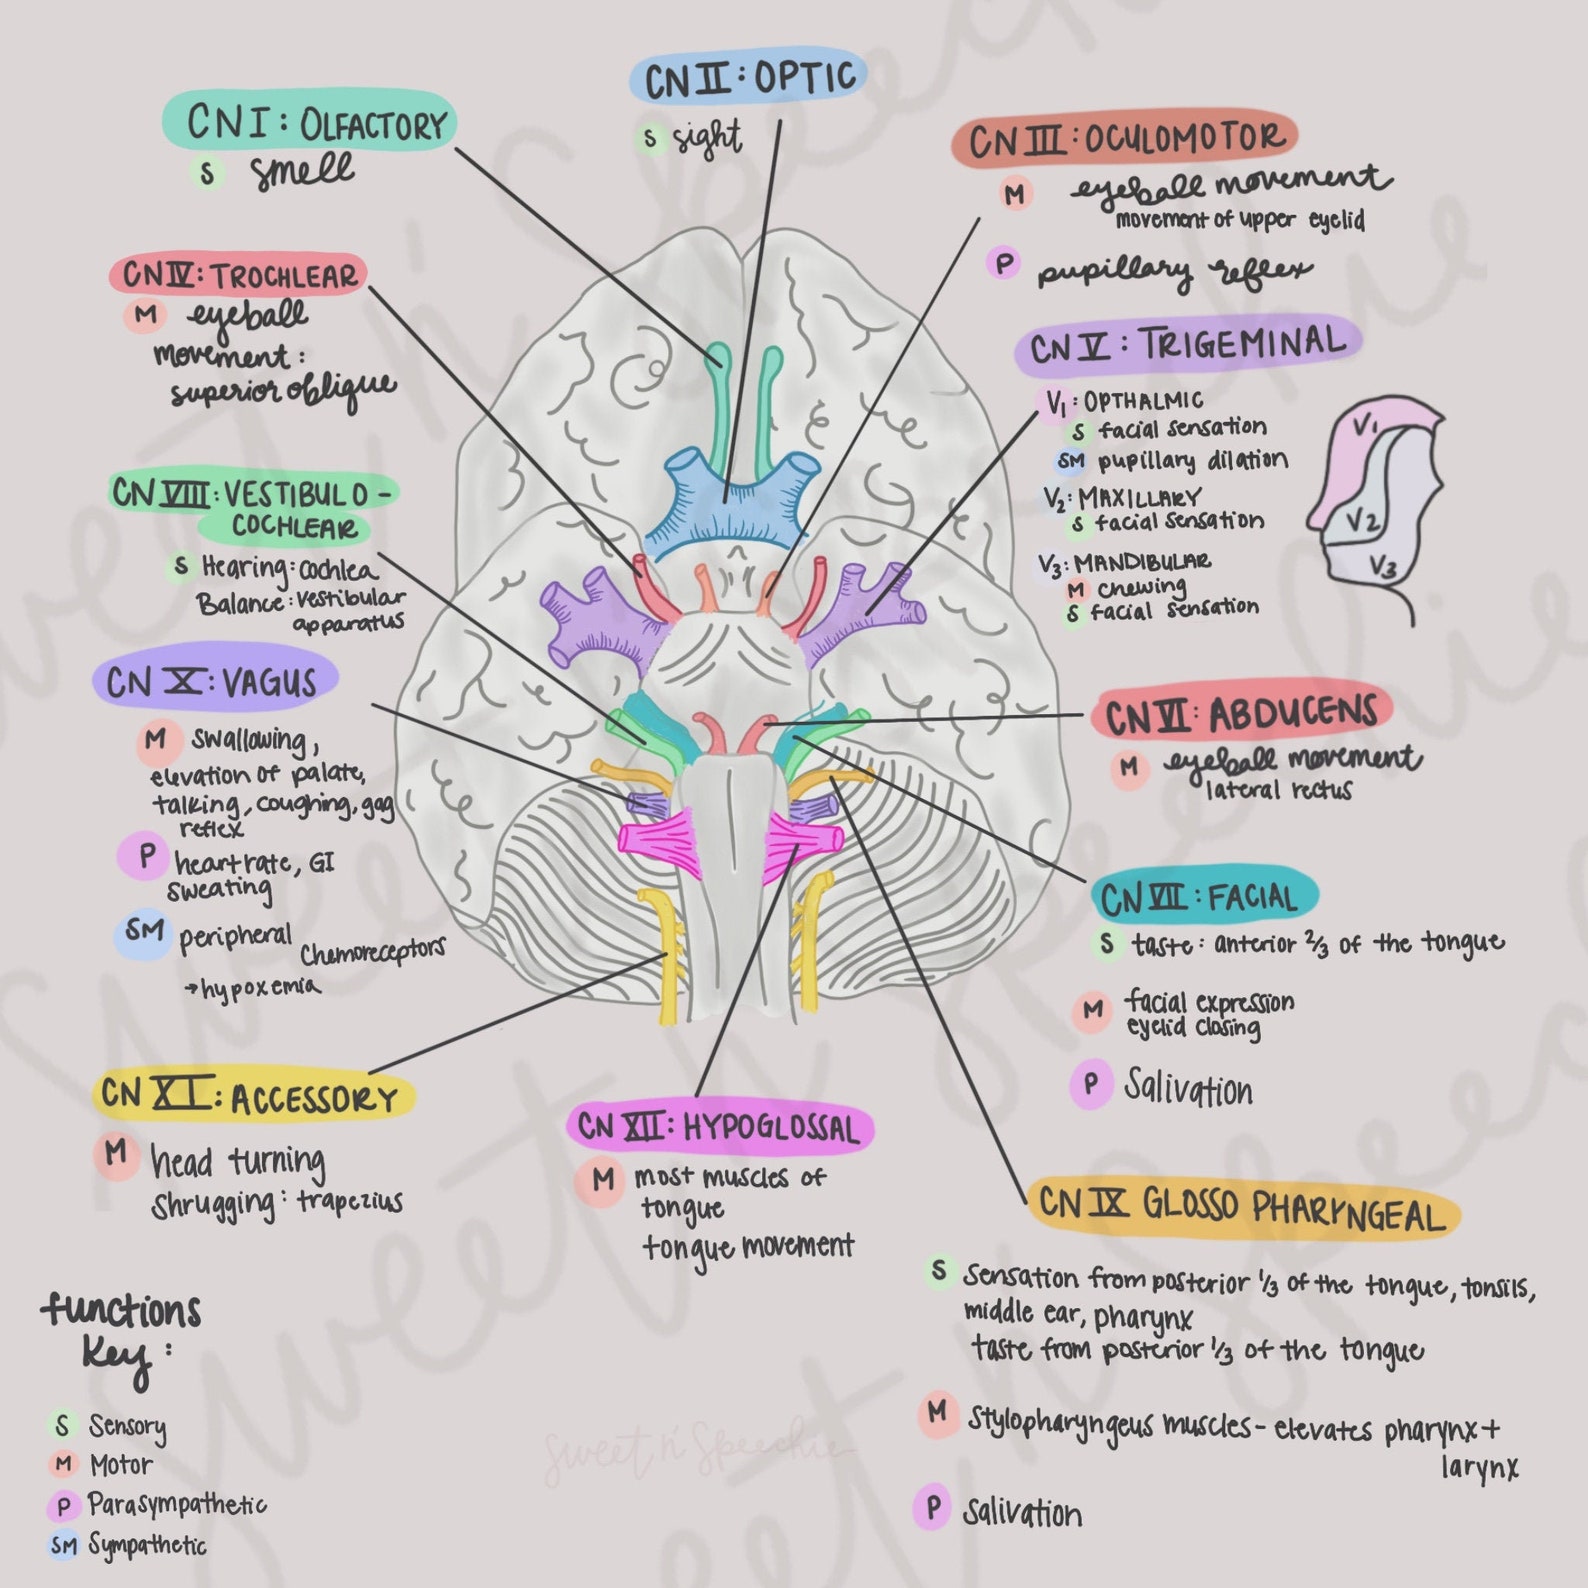 CN I : OLFACTORY
S smell
CN II : OPTIC
S sight
CN III : OCULOMOTOR
M eyeball movement
movement of upper eyelid
P pupillary reflex
CN IV : TROCHLEAR
M eyeball
movement :
superior oblique
CN V : TRIGEMINAL
V1 : OPTHALMIC
S facial sensation
SM pupillary dilation
V2 : MAXILLARY
S facial sensation
V3 : MANDIBULAR
M chewing
S facial sensation
V1
V2
V3
CN VIII : VESTIBULO -
COCHLEAR
S Hearing : cochlea
Balance : vestibular
apparatus
CN X : VAGUS
M swallowing,
elevation of palate,
talking, coughing, gag
reflex
P heart rate, GI
sweating
SM peripheral
Chemoreceptors
→ hypoxemia
CN VI : ABDUCENS
M eyeball movement
lateral rectus
CN VII : FACIAL
S taste : anterior 2/3 of the tongue
M facial expression
eyelid closing
P Salivation
CN XI : ACCESSORY
M head turning
Shrugging : trapezius
CN XII : HYPOGLOSSAL
M most muscles of
tongue
tongue movement
CN IX GLOSSO PHARYNGEAL
S Sensation from posterior 1/3 of the tongue, tonsils,
middle ear, pharynx
taste from posterior 1/3 of the tongue
M Stylopharyngeus muscles - elevates pharynx +
larynx
P Salivation
functions
Key :
S Sensory
M Motor
P Parasympathetic
SM Sympathetic
sweet n' Speechie